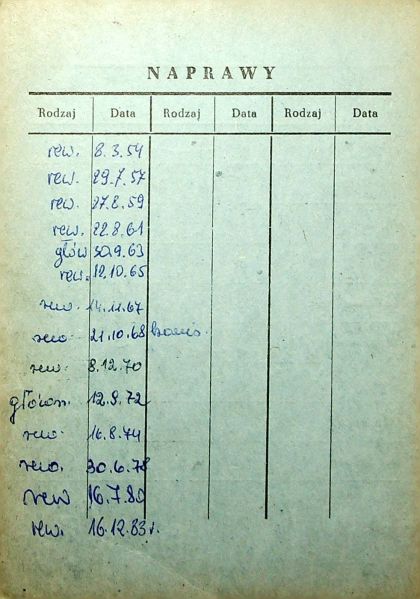 NAPRAWY
Rodzaj Data Rodzaj Data Rodzaj Data
rew. 8.3.54
rew. 29.7.57
rew. 27.8.59
rew. 22.8.61
głów 30.9.63
rew. 12.10.65
rew. 14.11.67
rew. 21.10.68
rew. 8.12.70
główn. 12.9.72
rew. 16.8.74
rew. 30.6.78
rew 16.7.80
rew. 16.12.83 r.